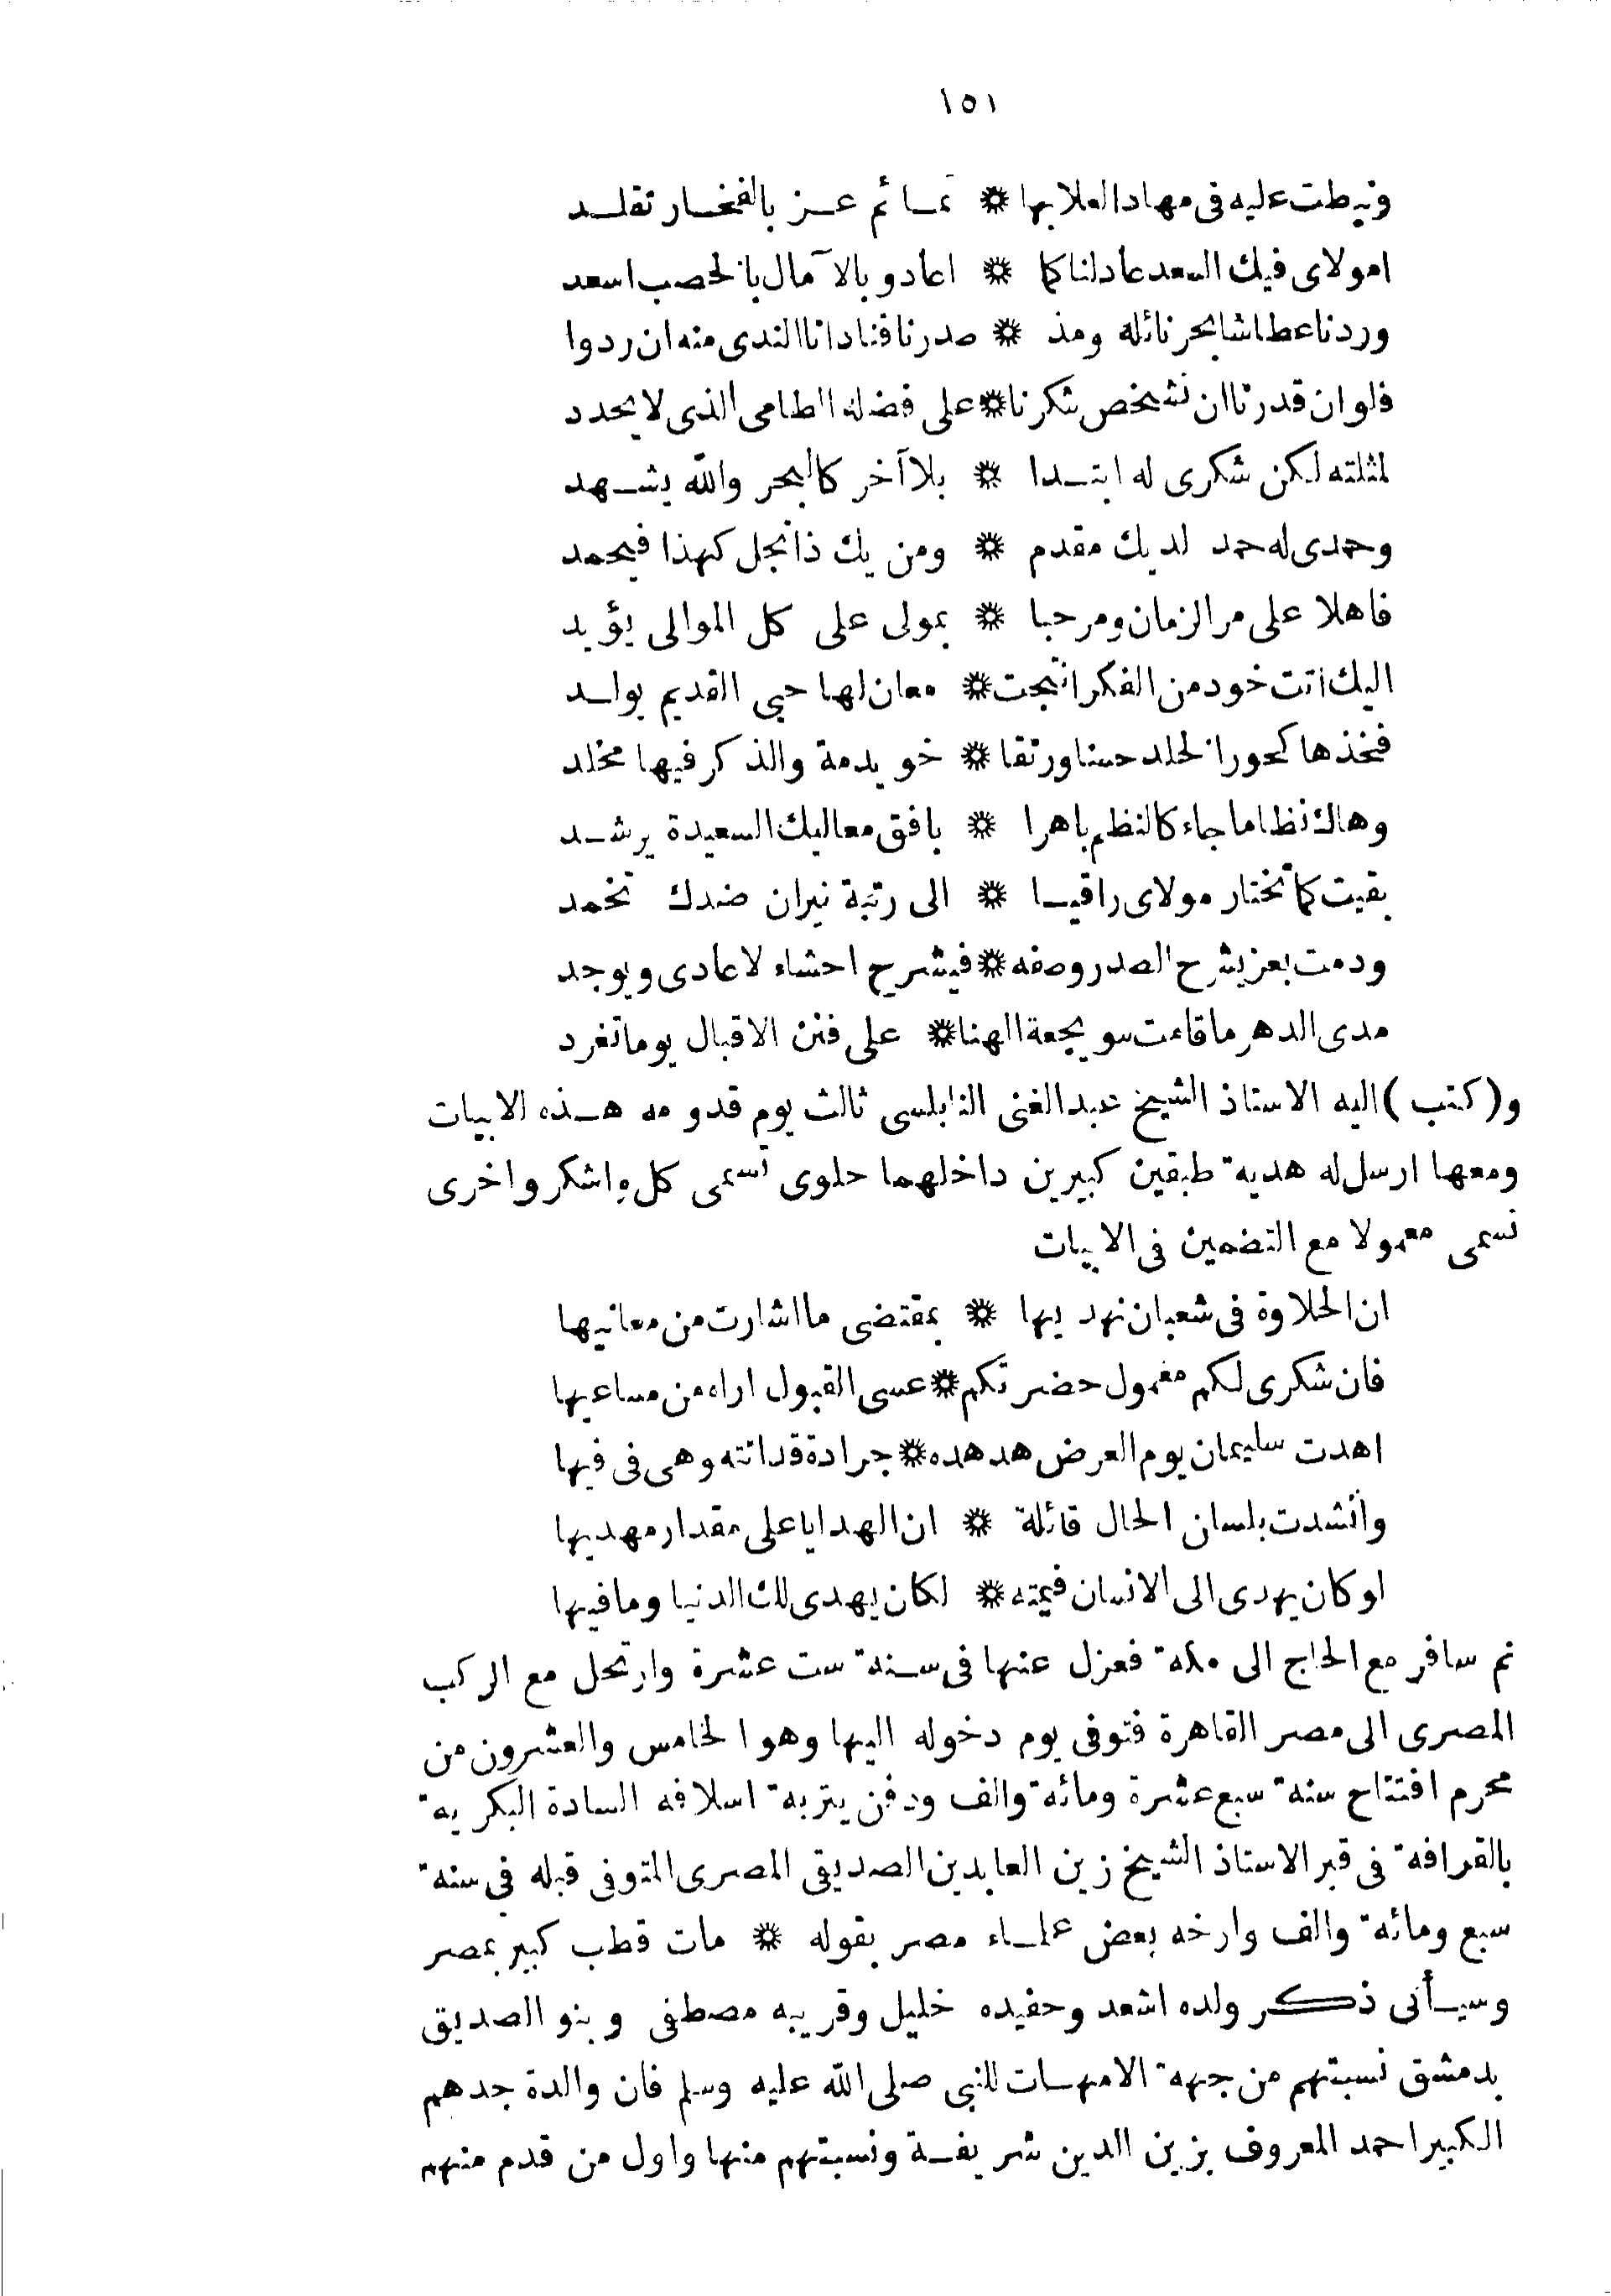 ١٥١
ونيطت عليه فى مهاد العلا بها * تمائم عز بالفخار تقلد
امولاى فيك السعد عاد لنا كما * اعادو بالآمال بالخصب اسعد
وردنا عطاشا بحر نائله ومذ * صدرنا فنادانا الندى منه ان ردوا
فلو ان قدرنا ان نشخص شكرنا * على فضله الطامى الذى لا يحدد
لمثلته لكن شكرى له ابتدا * بلا آخر كالبحر والله يشهد
وحمدى له حمد لديك مقدم * ومن يك ذا نجل كهذا فيحمد
فاهلا على مر الزمان ومرحبا * بمولى على كل الموالى يؤيد
اليك اتت خود من الفكر انتجت * معان لها حبى القديم يولد
فخذها كحور الخلد حسنا ورتقا * خويدمة والذكر فيها مخلد
وهاك نظاما جاء كالنظم باهرا * بافق معاليك السعيدة يرشد
بقيت كما تختار مولاى راقيا * الى رتبة نيران ضدك تخمد
ودمت بعز يشرح الصدر وصفه * فيشرح احشاء لاعادى ويوجد
مدى الدهر ما قامت سويجعة الهنا * على فنن الاقبال يوما تغرد
و(كتب) اليه الاستاذ الشيخ عبد الغنى النابلسى ثالث يوم قدومه هذه الابيات
ومعها ارسل له هدية طبقين كبيرين داخلهما حلوى تسمى كل واشكر واخرى
تسمى معمولا مع التضمين فى الابيات
ان الحلاوة فى شعبان نهديها * بمقتضى ما اشارت من معانيها
فان شكرى لكم معمول حضرتكم * عسى القبول اراه من مساعيها
اهدت سليمان يوم العرض هدهده * جرادة قد اتته وهى فى فيها
وانشدت بلسان الحال قائلة * ان الهدايا على مقدار مهديها
لو كان يهدى الى الانسان قيمته * لكان يهدى لك الدنيا وما فيها
ثم سافر مع الحاج الى مكة فعزل عنها فى سنة ست عشرة وارتحل مع الركب
المصرى الى مصر القاهرة فتوفى يوم دخوله اليها وهو الخامس والعشرون من
محرم افتتاح سنة سبع عشرة ومائة والف ودفن بتربة اسلافه السادة البكرية
بالقرافة فى قبر الاستاذ الشيخ زين العابدين الصديقى المصرى المتوفى قبله فى سنة
سبع ومائة والف وارخه بعض علماء مصر بقوله * مات قطب كبير بمصر
وسيأتى ذكر ولده اسعد وحفيده خليل وقريبه مصطفى وبنو الصديق
بدمشق نسبتهم من جهة الامهات للنبى صلى الله عليه وسلم فان والدة جدهم
الكبير احمد المعروف بزين الدين شريفة ونسبتهم منها واول من قدم منهم